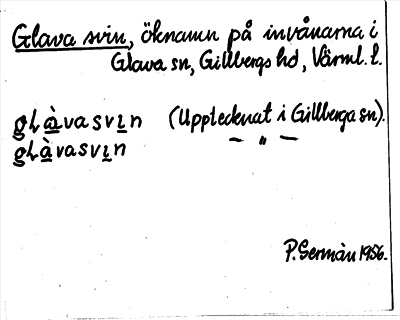 Glava svin, öknamn på invånarna i
Glava sn, Gillbergs hd, Värml. l.
gLàvasvın (Upptecknat i Gillberga sn).
gLàvasvın — „ —
P. Germàn 1956.